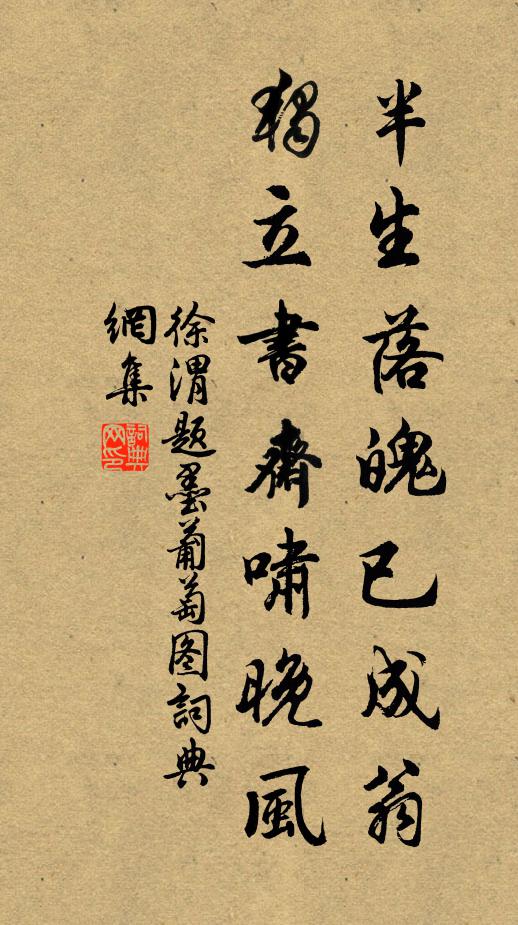 半生落魄已成翁
獨立書齋嘯晚風
徐渭題墨葡萄图詞典
網集
詞典網印